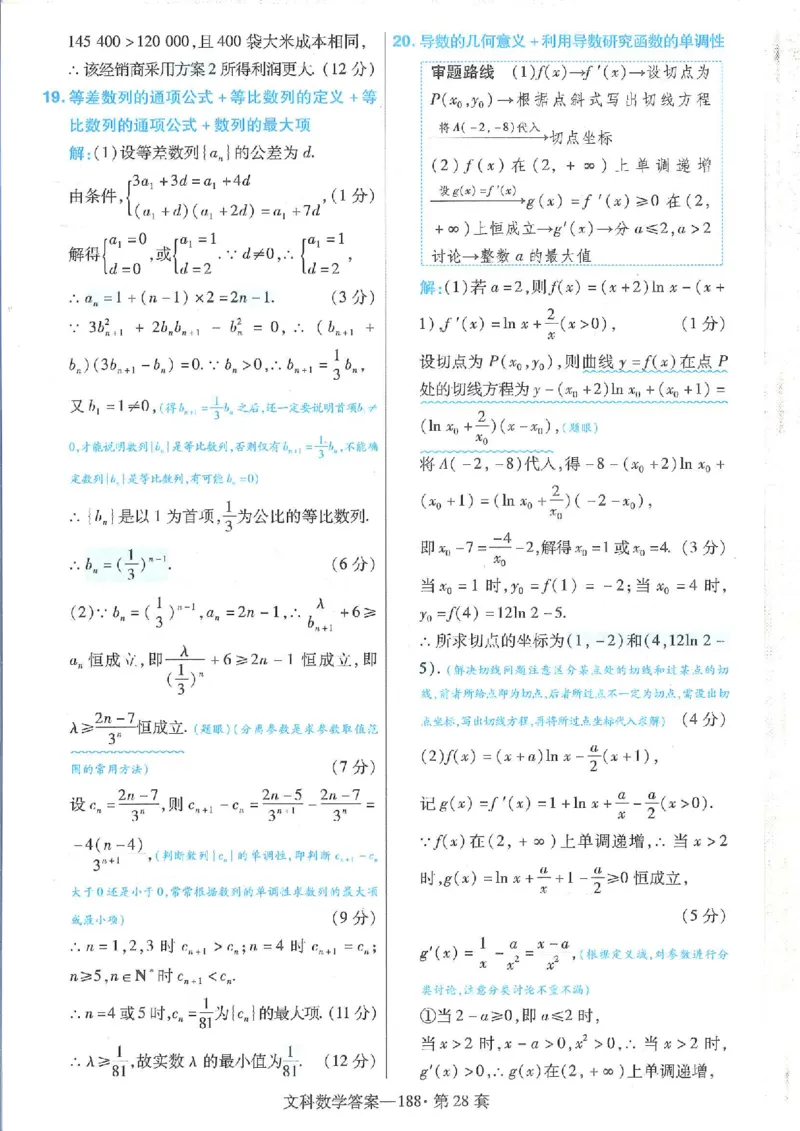 145 400>120 000,且 400 袋大米成本相同,
∴该经销商采用方案 2 所得利润更大. (12 分)
19. 等差数列的通项公式 + 等比数列的定义 + 等
比数列的通项公式 + 数列的最大项
解:(1)设等差数列{aₙ}的公差为 d.
由条件,{3a₁+3d=a₁+4d
(a₁+d)(a₁+2d)=a₁+7d ,(1 分)
解得{a₁=0 d=0 ,或{a₁=1 d=2 .∵d≠0,∴{a₁=1 d=2 ,
∴aₙ=1+(n-1)×2=2n-1. (3 分)
∵ 3b²ₙ₊₁ + 2bₙbₙ₊₁ - b²ₙ = 0,∴ (bₙ₊₁ +
bₙ)(3bₙ₊₁-bₙ)=0.∵bₙ>0,∴bₙ₊₁=1/3 bₙ,
又 b₁=1≠0,(得bₙ₊₁=1/3 bₙ之后,还一定要说明首项b₁≠
0,才能说明数列{bₙ}是等比数列,否则仅有bₙ₊₁=1/3 bₙ,不能确
定数列{bₙ}是等比数列,有可能bₙ=0)
∴{bₙ}是以 1 为首项,1/3为公比的等比数列.
∴bₙ=(1/3)ⁿ⁻¹. (6 分)
(2)∵bₙ=(1/3)ⁿ⁻¹,aₙ=2n-1,∴λ/bₙ₊₁+6≥
aₙ恒成立,即λ/(1/3)ⁿ+6≥2n-1 恒成立,即
λ≥(2n-7)/3ⁿ恒成立.(题眼)(分离参数是求参数取值范
围的常用方法) (7 分)
设 cₙ=(2n-7)/3ⁿ,则 cₙ₊₁-cₙ=(2n-5)/3ⁿ⁺¹-(2n-7)/3ⁿ=
-4(n-4)/3ⁿ⁺¹,(判断数列{cₙ}的单调性,即判断cₙ₊₁-cₙ
大于0还是小于0,常常根据数列的单调性求数列的最大项
或最小项) (9 分)
∴n=1,2,3 时 cₙ₊₁>cₙ;n=4 时 cₙ₊₁=cₙ;
n≥5,n∈N*时 cₙ₊₁<cₙ.
∴n=4 或 5 时,cₙ=1/81为{cₙ}的最大项. (11 分)
∴λ≥1/81,故实数 λ 的最小值为1/81. (12 分)
20. 导数的几何意义 + 利用导数研究函数的单调性
审题路线 (1)f(x)→f′(x)→设切点为
P(x₀,y₀)→根据点斜式写出切线方程
将A(-2,-8)代入→切点坐标
(2)f(x)在(2,+∞)上单调递增
设g(x)=f′(x)→g(x)=f′(x)≥0 在(2,
+∞)上恒成立→g′(x)→分 a≤2,a>2
讨论→整数 a 的最大值
解:(1)若 a=2,则f(x)=(x+2)ln x-(x+
1),f′(x)=ln x+2/x(x>0), (1 分)
设切点为 P(x₀,y₀),则曲线 y=f(x)在点 P
处的切线方程为 y-(x₀+2)ln x₀+(x₀+1)=
(ln x₀+2/x₀)(x-x₀),(题眼)
将 A(-2,-8)代入,得-8-(x₀+2)ln x₀+
(x₀+1)=(ln x₀+2/x₀)(-2-x₀),
即 x₀-7=-4/x₀-2,解得 x₀=1 或 x₀=4. (3 分)
当 x₀=1 时,y₀=f(1)=-2;当 x₀=4 时,
y₀=f(4)=12ln 2-5.
∴所求切点的坐标为(1,-2)和(4,12ln 2-
5).(解决切线问题注意区分某点处的切线和过某点的切
线,前者所给点即为切点,后者所过点不一定为切点,需设出切
点坐标,写出切线方程,再将所过点坐标代入求解) (4 分)
(2)f(x)=(x+a)ln x-a/2(x+1),
记 g(x)=f′(x)=1+ln x+a/x-a/2(x>0).
∵f(x)在(2,+∞)上单调递增,∴当 x>2
时,g(x)=ln x+a/x+1-a/2≥0 恒成立,
(5 分)
g′(x)=1/x-a/x²=(x-a)/x²,(根据定义域,对参数进行分
类讨论,注意分类讨论不重不漏)
①当 2-a≥0,即 a≤2 时,
当 x>2 时,x-a>0,x²>0,∴当 x>2 时,
g′(x)>0,∴g(x)在(2,+∞)上单调递增,
文科数学答案—188·第 28 套